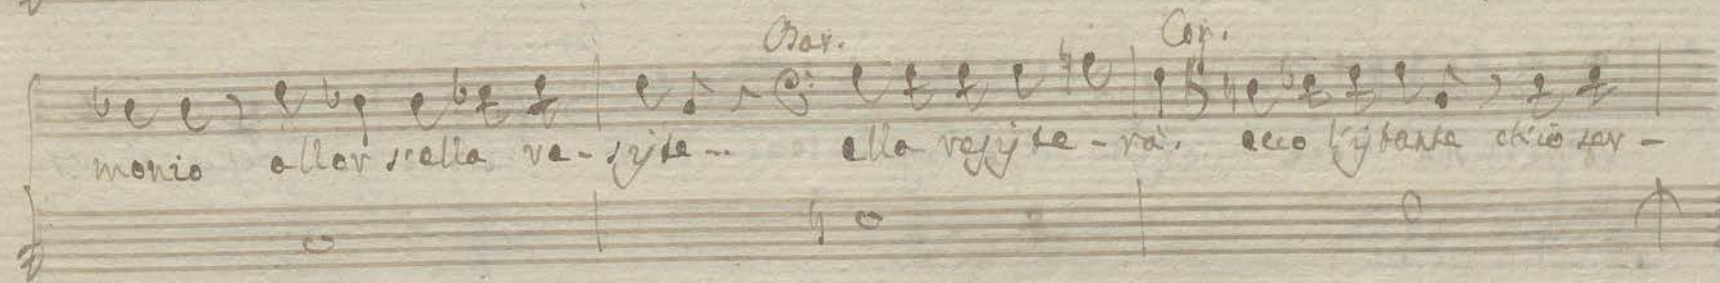 Bar. Cor.
monio allor s'ella re-sÿste-.. ella resÿste-rà. ecco l'ÿstante ch'io ser-